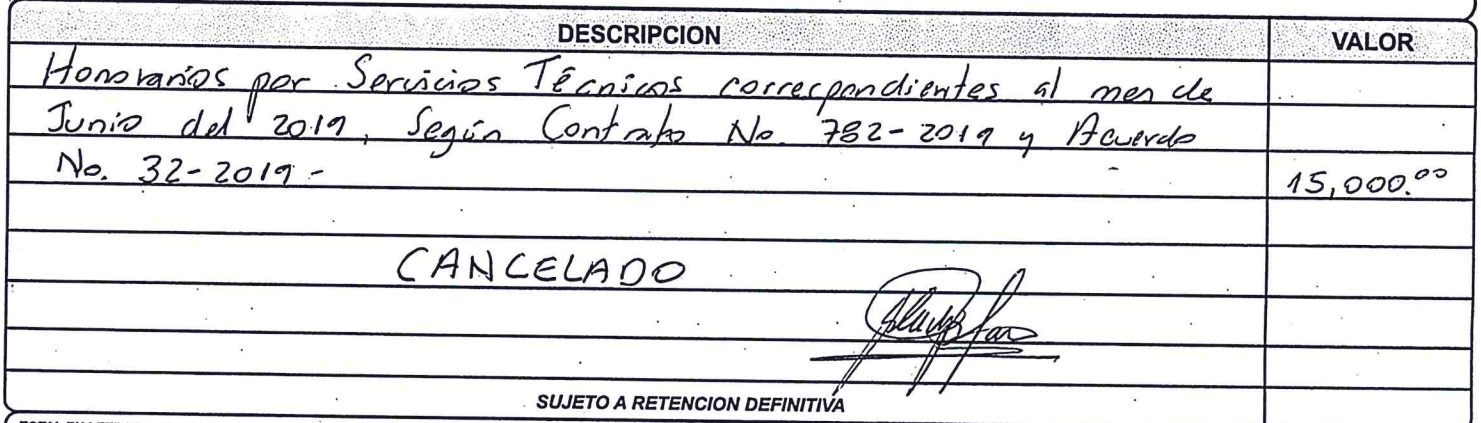 DESCRIPCION VALOR
Honorarios por Servicios Técnicos correspondientes al mes de
Junio del 2019, Según Contrato No. 782-2019 y Acuerdo
No. 32-2019- 15,000.00
CANCELADO
SUJETO A RETENCION DEFINITIVA